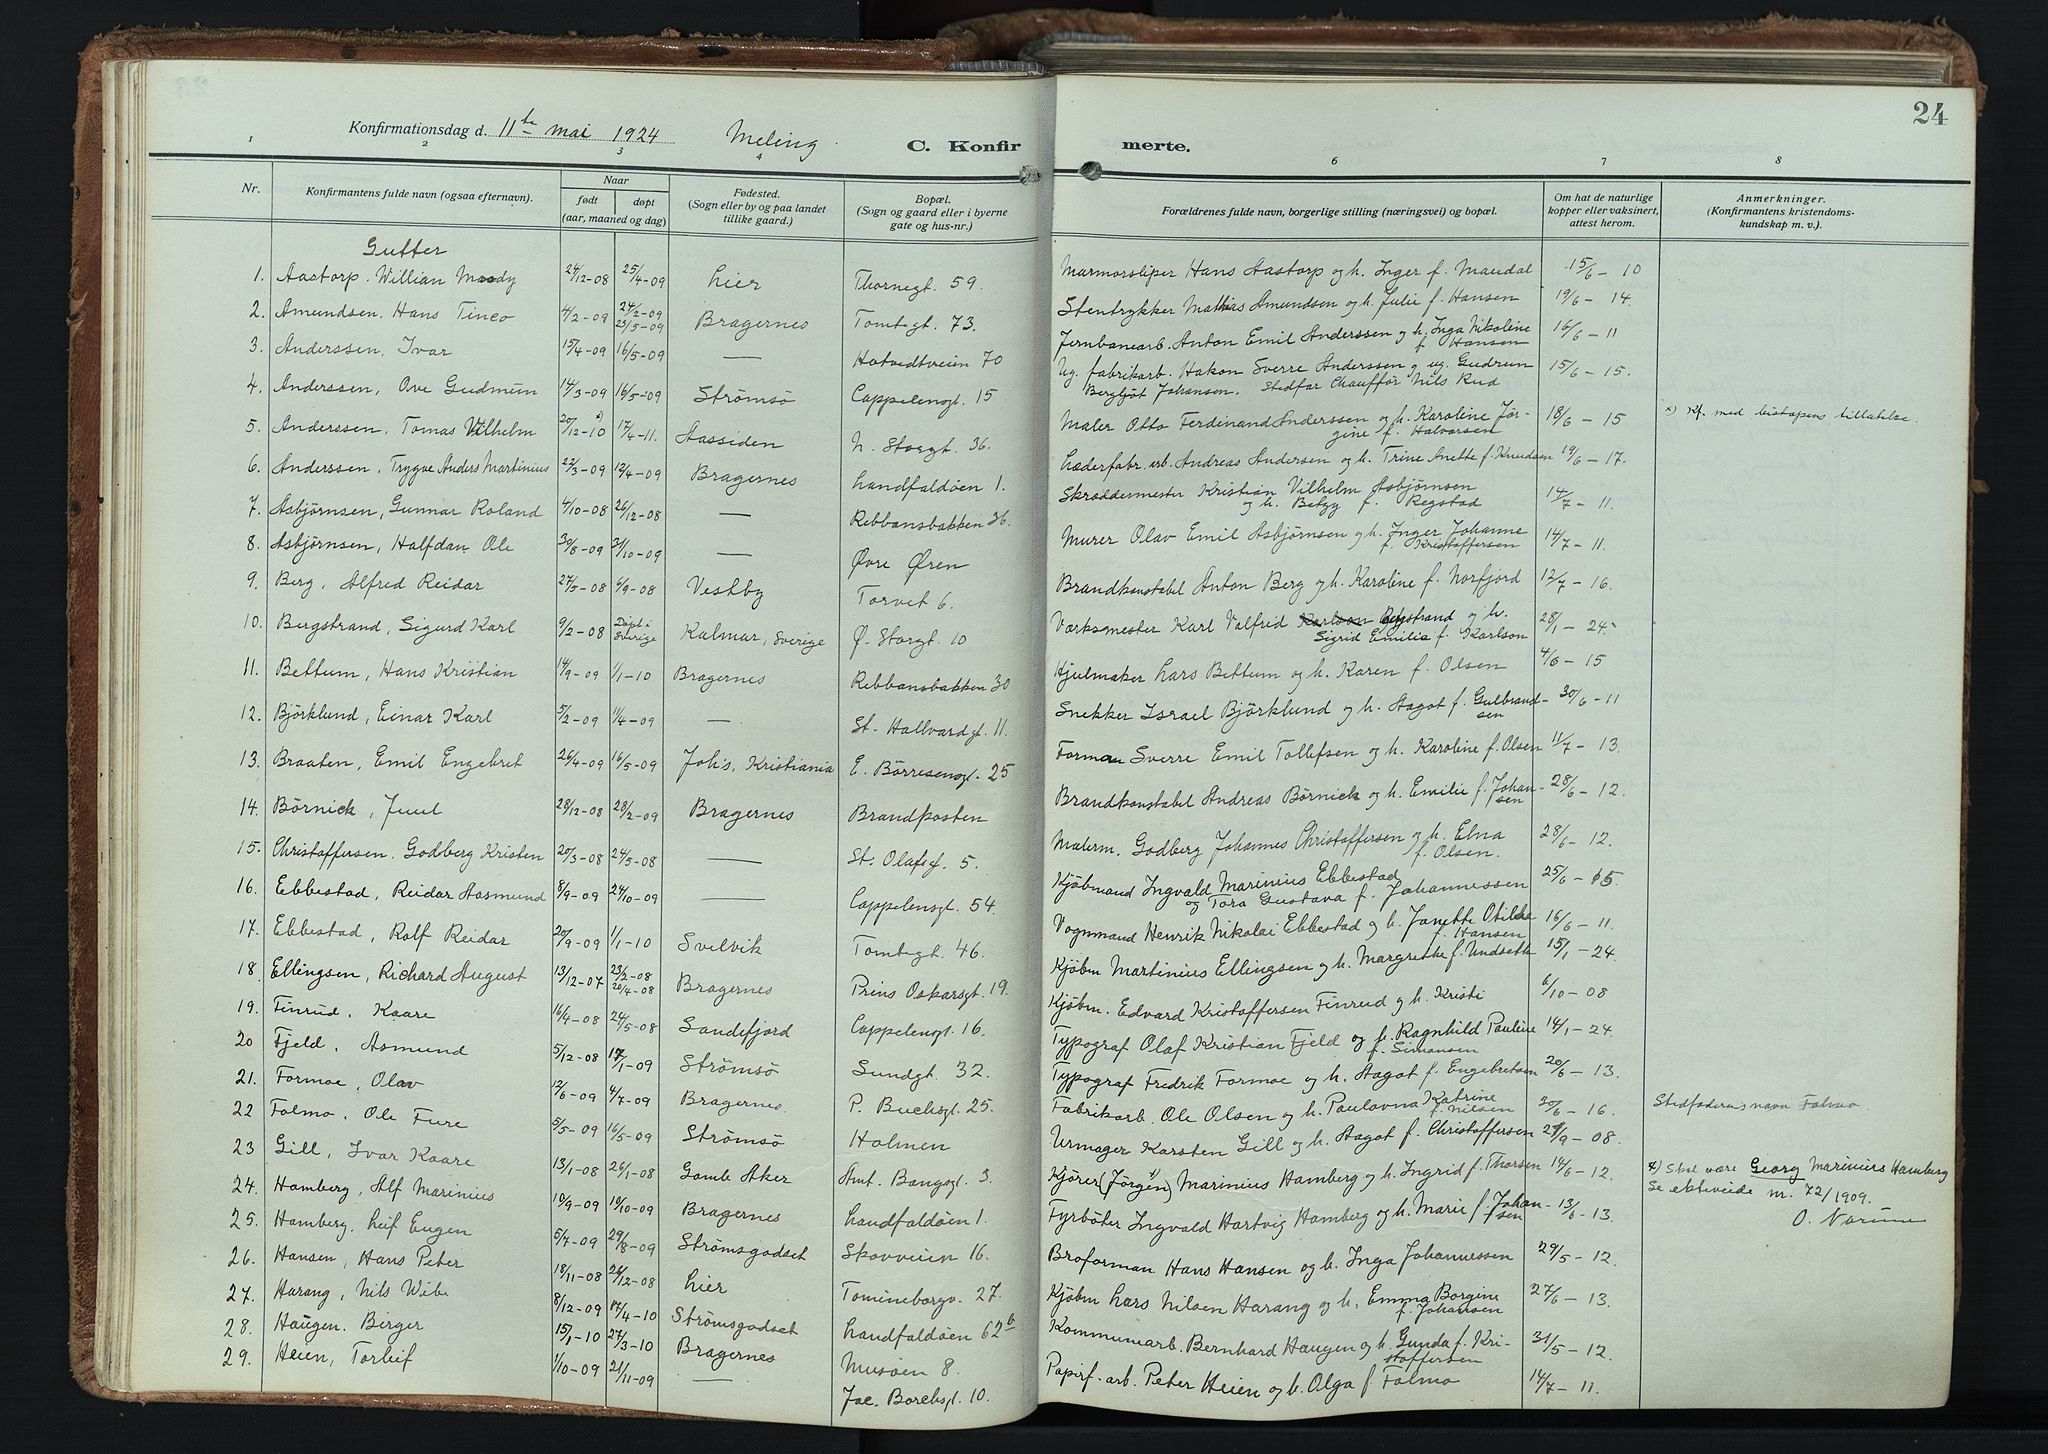 24
Konfirmationsdag d. 11te mai 1924 Meling C. Konfirmerte.
1 2 3 4 6 7 8
Nr.
Konfirmantens fulde navn (ogsaa efternavn).
Naar
født døpt
(aar, maaned og dag)
Fødested.
(Sogn eller by og paa landet
tillike gaard.)
Bopæl.
(Sogn og gaard eller i byerne
gate og hus-nr.)
Forældrenes fulde navn, borgerlige stilling (næringsvei) og bopæl.
Om hat de naturlige
kopper eller vaksinert,
attest herom.
Anmerkninger.
(Konfirmantens kristendoms-
kundskap m. v.).
Gutter
1. Aastorp. Willian Moody 24/12-08 25/4-09 Lier Thornegt. 59. Marmorsliper Hans Aastorp og h. Inger f. Mandal 15/6-10
2. Amundsen. Hans Tinco 4/2-09 24/2-09 23/5-09 Bragernes Tomtegt. 73. Stentrykker Mathias Amundsen og h. Julie f. Hansen 19/6-14.
3. Anderssen, Ivar 15/4-09 16/5-09 — Hotvedtveien 70 Jernbanearb. Anton Emil Anderssen og h. Inga Nikoline f. Hansen 16/6-11
4. Anderssen, Ove Gudmun 14/3-09 16/5-09 Strømsø Cappelensgt. 15 Ug. fabrikarb. Hakon Sverre Anderssen og ug. Gudrun
Bergljot Johansen. Stedfar Chauffør Nils Rud 15/6-15.
5. Anderssen, Tomas Vilhelm 20/12-10 x) 17/4-11. Aassiden N. Storgt. 36. Maler Otto Ferdinand Anderssen og h. Karoline Jør-
gine f. Halvorsen 18/6-15 x) Kf. med biskopens tillatelse.
6. Anderssen, Trygve Anders Martinius 22/3-09 12/4-09 Bragernes Landfaldøen 1. Læderfabr. arb. Andreas Andersen og h. Trine Anette f. Knudsen 19/6-17.
7. Asbjørnsen, Gunnar Roland 4/10-08 26/12-08 — Ribbansbakken 36. Skræddermester Kristian Vilhelm Asbjørnsen
og h. Betzy f. Regstad 14/7-11.
8. Asbjørnsen, Halfdan Ole 30/8-09 31/10-09 — Øvre Øren Murer Olav Emil Asbjørnsen og h. Inger Johanne
f. Kristoffersen 14/7-11.
9. Berg, Alfred Reidar 27/5-08 6/9-08 Vestby Torvet 6. Brandkonstabel Anton Berg og h. Karoline f. Norfjord 12/7-16.
10. Bergstrand, Sigurd Karl 9/2-08 Døpt i Sverige Kalmar, Sverige Ø. Storgt. 10 Værksmester Karl Valfrid Karlson Bergstrand og h.
Sigrid Emilia f. Karlson 28/1-24.
11. Bettum, Hans Kristian 14/9-09 1/1-10 Bragernes Ribbansbakken 30 Hjulmaker Lars Bettum og h. Karen f. Olsen 4/6-15
12. Björklund, Einar Karl 5/2-09 11/4-09 — St. Hallvardsg. 11. Snekker Israel Björklund og h. Aagot f. Gulbrand-
sen 30/6-11
13. Braaten, Emil Engebret 26/4-09 16/5-09 Joh's, Kristiania E. Børresensgt. 25 Forman Sverre Emil Tollefsen og h. Karoline f. Olsen 11/7-13.
14. Børnick, Juul 28/12-08 28/2-09 Bragernes Brandposten Brandkonstabel Andreas Børnick og h. Emilie f. Johan-
sen 28/6-12.
15. Christoffersen. Godberg Kristen 20/3-08 24/5-08 — St. Olafsg. 5. Malerm. Godberg Johannes Christoffersen og h. Elna
f. Olsen. 28/6-12.
16. Ebbestad, Reidar Aasmund 8/9-09 24/10-09 — Cappelensgt. 54. Kjøbmand Ingvald Marinius Ebbestad
og Tora Gustava f. Johannessen 25/6-15.
17. Ebbestad, Rolf Reidar 20/9-09 1/1-10 Svelvik Tomtegt. 46. Vognmand Henrik Nikolai Ebbestad og h. Janette Otilda
f. Hansen 16/6-11.
18 Ellingsen, Richard August 13/12-07 23/2-08 20/4-08 Bragernes Prins Oskarsgt. 19. Kjøbm Martinius Ellingsen og h. Margrethe f. Undseth 15/1-24.
19. Finrud. Kaare 16/4-08 24/5-08 Sandefjord Cappelensgt. 16. Kjøbm. Edvard Kristoffersen Finrud og h. Kristi 6/10-08
20 Fjeld. Asmund 5/12-08 17/1-09 Strømsø Sundgt. 32. Typograf Olaf Kristian Fjeld og h. Ragnhild Pauline
f. Simonsen 14/1-24.
21. Formoe, Olav 12/6-09 4/7-09 Bragernes. P. Buchsgt. 25. Typograf Fredrik Formoe og h. Aagot f. Engebretsen 20/6-13.
22 Folmo. Ole Fure 5/5-09 16/5-09 Strømsø Holmen Fabrikarb. Ole Olsen og h. Paulovna Katrine
f. Nilsen 30/6-16. Stedfaderens navn Folmo
23 Gill, Ivar Kaare 13/1-08 26/1-08 Gamle Aker Amt. Bangsgt. 3. Urmager Karsten Gill og h. Aagot f. Christoffersen 29/9-08.
24. Hamberg, Alf Marinius 10/9-09 10/10-09 Bragernes Landfaldøen 1. Kjører (Jörgen) x) Marinius Hamberg og h. Ingrid f. Thorsen 14/6-12. x) Skal være Georg Marinius Hamberg
Se ektevidde nr. 72/1909.
25. Hamberg. Leif Eugen 5/7-09 29/8-09 Strømsgodset Skovveien 16. Fyrbøter Ingvald Hartvig Hamberg og h. Marie f. Johan-
sen 13/6-13.
26. Hansen, Hans Peter 18/11-08 26/12-08 Lier Tomineborgv. 27. Broforman Hans Hansen og h. Inga Johannessen 29/5-12.
27. Harang, Nils Wibe 8/12-09 17/4-10 Strømsgodset Landfaldøen 62b Kjøbm Lars Nilsen Harang og h. Emma Borgine
f. Johansen 27/6-13.
28. Haugen. Birger 15/1-10 27/3-10 Bragernes Musøen 8. Kommunearb. Bernhard Haugen og h. Gunda f. Kri-
stoffersen 31/5-12.
29. Heien, Torleif 1/10-09 21/11-09 — Jac. Borchsgt. 10. Papirf. arb. Peter Heien og h. Olga f Folmo 14/7-11.